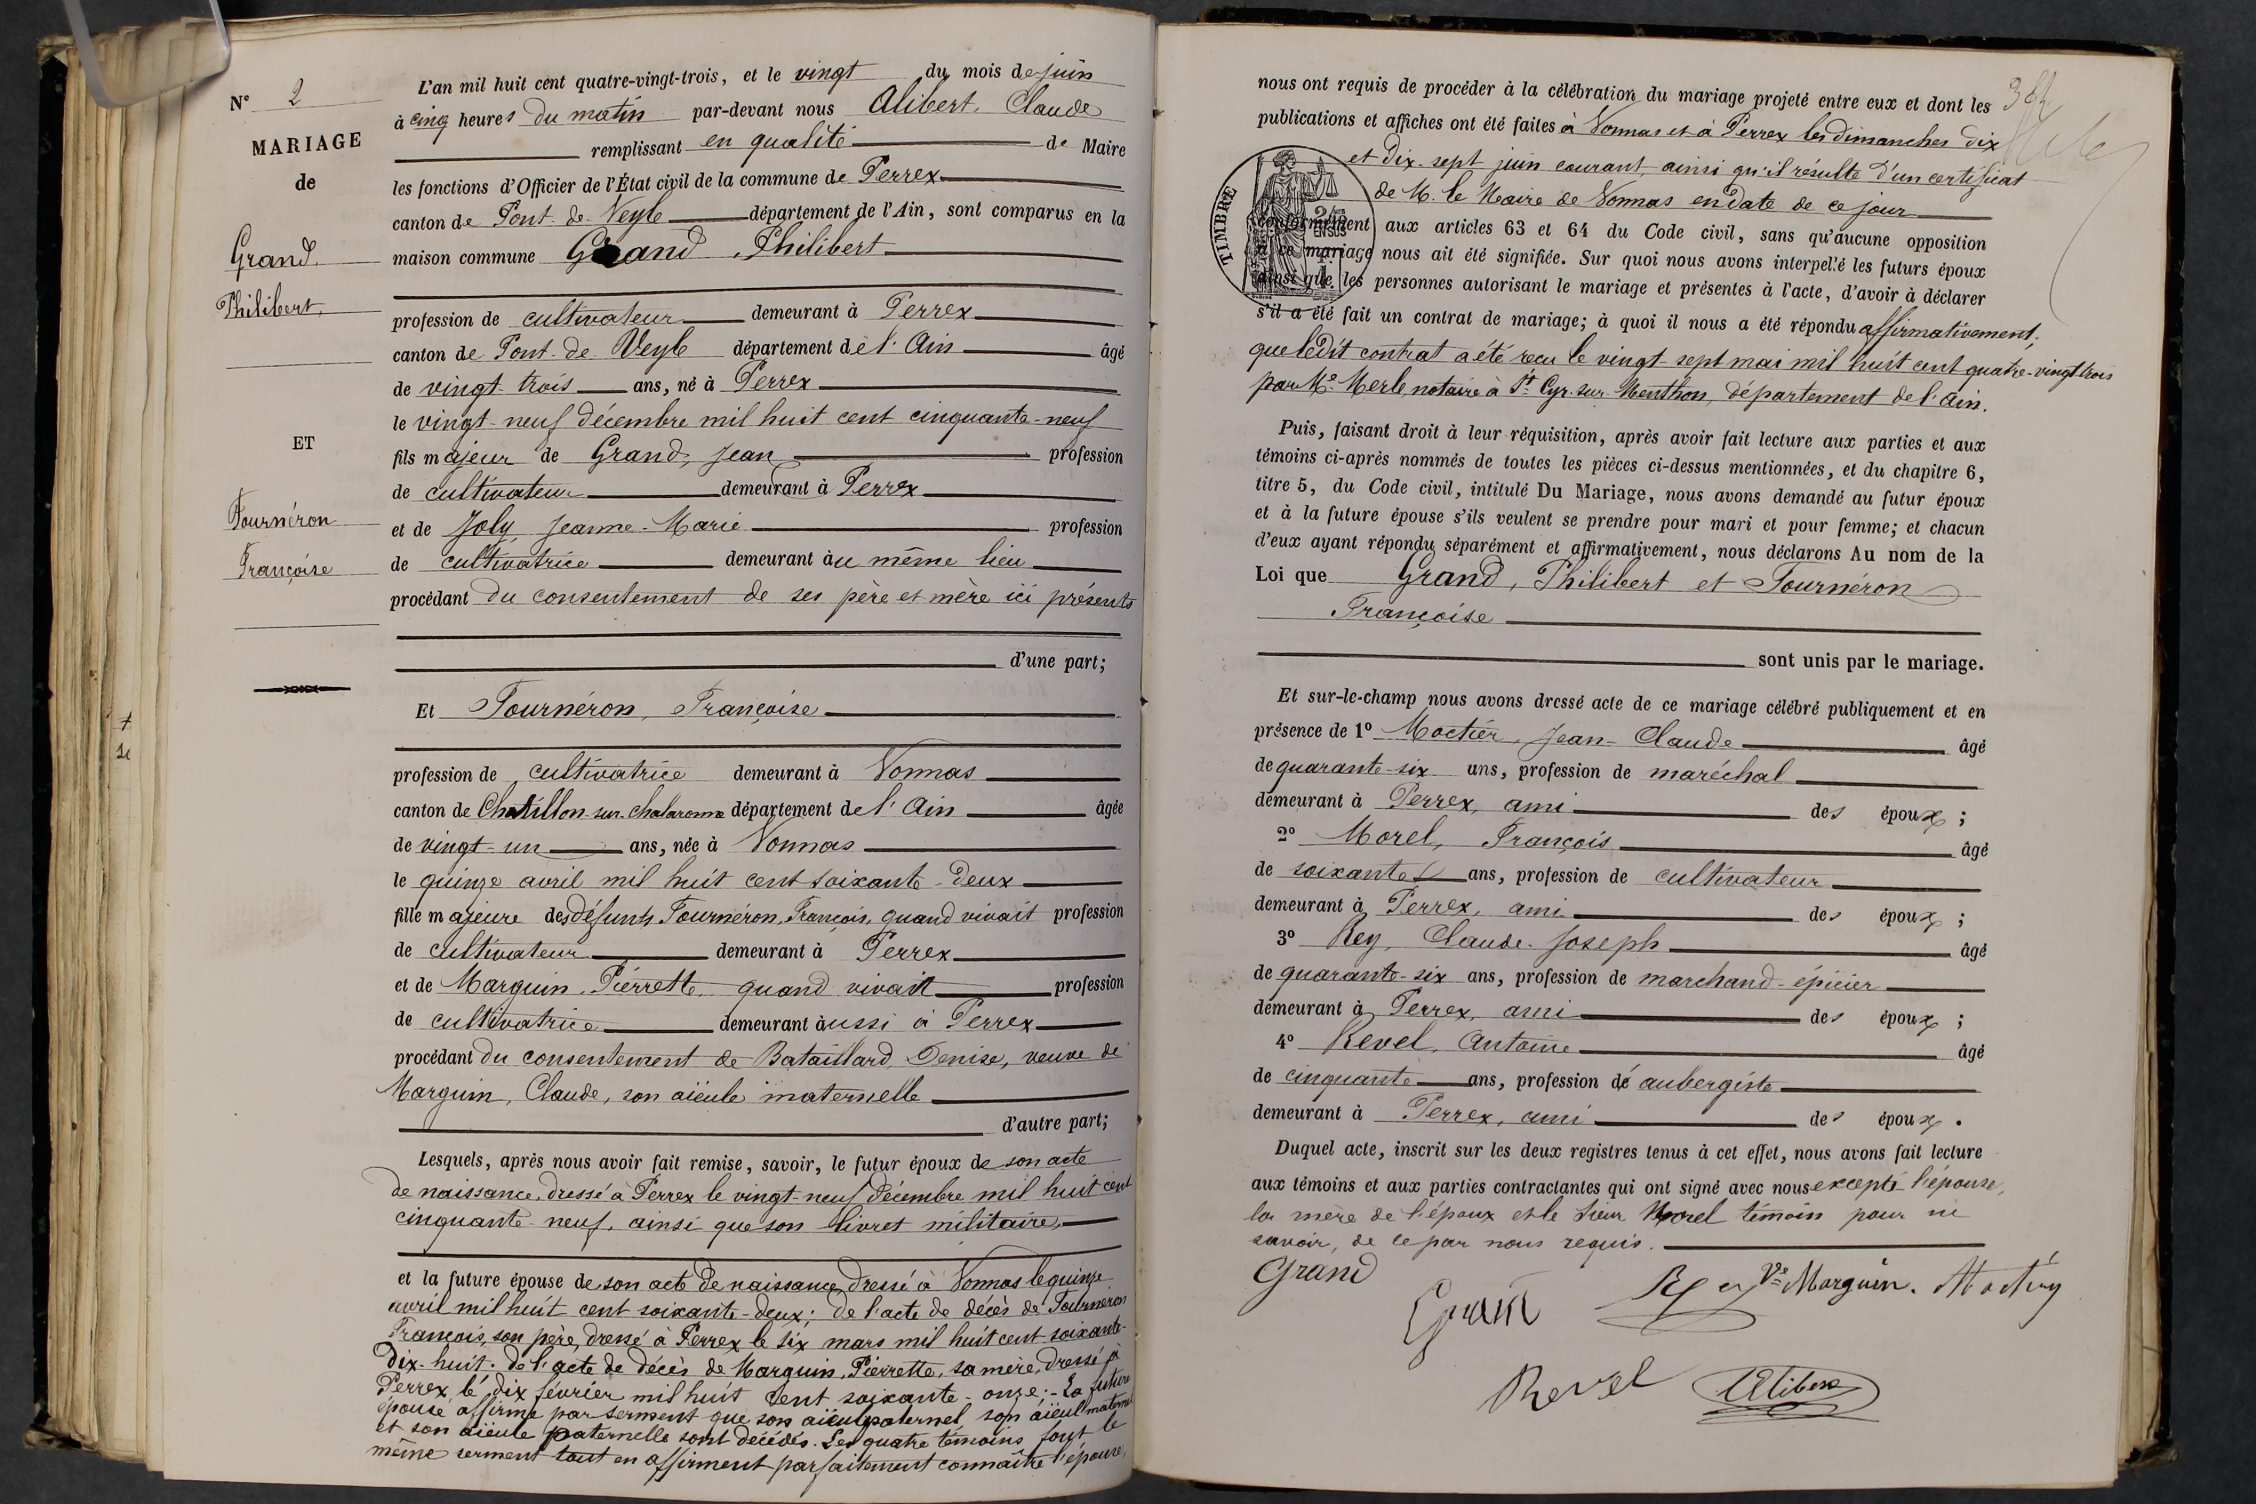 N° 2
MARIAGE
de
Grand
Philibert
ET
Fournéron
Françoise
L'an mil huit cent quatre-vingt-trois, et le vingt du mois de juin
à cinq heures du matin par-devant nous Alibert, Claude
remplissant en qualité de Maire
les fonctions d'Officier de l'État civil de la commune de Perrex
canton de Pont-de-Veyle département de l'Ain, sont comparus en la
maison commune Grand, Philibert
profession de cultivateur demeurant à Perrex
canton de Pont-de-Veyle département de l'Ain âgé
de vingt-trois ans, né à Perrex
le vingt-neuf décembre mil huit cent cinquante-neuf
fils majeur de Grand, Jean profession
de cultivateur demeurant à Perrex
et de Joly, Jeanne-Marie profession
de cultivatrice demeurant àu même lieu
procédant du consentement de ses père et mère ici présents
d'une part;
Et Fournéron, Françoise
profession de cultivatrice demeurant à Vonnas
canton de Chatillon-sur-Chalaronne département de l'Ain âgée
de vingt-un ans, née à Vonnas
le quinze avril mil huit cent soixante-deux
fille majeure des défunts Fournéron, François, quand vivait profession
de cultivateur demeurant à Perrex
et de Marguin, Pierrette, quand vivait profession
de cultivatrice demeurant àussi à Perrex
procédant du consentement de Bataillard, Denise, veuve de
Marguin, Claude, son aïeule maternelle
d'autre part;
Lesquels, après nous avoir fait remise, savoir, le futur époux de son acte
de naissance, dressé à Perrex le vingt-neuf décembre mil huit cent
cinquante-neuf, ainsi que son livret militaire,
et la future épouse de son acte de naissance, dressé à Vonnas le quinze
avril mil huit cent soixante-deux; de l'acte de décès de Fournéron
François, son père, dressé à Perrex le six mars mil huit cent soixante-
dix-huit; de l'acte de décès de Marguin, Pierrette, sa mère, dressé à
Perrex, le dix février mil huit cent soixante-onze; - La future
épouse affirme par serment que son aïeul paternel, son aïeul maternel
et son aïeule paternelle sont décédés. Les quatre témoins font le
même serment tout en affirment parfaitement connaître l'épouse,
nous ont requis de procéder à la célébration du mariage projeté entre eux et dont les
publications et affiches ont été faites à Vonnas et à Perrex les dimanches dix
et dix-sept juin courant, ainsi qu'il résulte d'un certificat
de M. le Maire de Vonnas en date de ce jour
TIMBRE
conformément aux articles 63 et 64 du Code civil, sans qu'aucune opposition
à ce mariage nous ait été signifiée. Sur quoi nous avons interpellé les futurs époux
ainsi que les personnes autorisant le mariage et présentes à l'acte, d'avoir à déclarer
s'il a été fait un contrat de mariage; à quoi il nous a été répondu affirmativement,
que ledit contrat a été reçu le vingt-sept mai mil huit cent quatre-vingt-trois
par Me Merle, notaire à St Cyr-sur-Menthon, département de l'Ain.
Puis, faisant droit à leur réquisition, après avoir fait lecture aux parties et aux
témoins ci-après nommés de toutes les pièces ci-dessus mentionnées, et du chapitre 6,
titre 5, du Code civil, intitulé Du Mariage, nous avons demandé au futur époux
et à la future épouse s'ils veulent se prendre pour mari et pour femme; et chacun
d'eux ayant répondu séparément et affirmativement, nous déclarons Au nom de la
Loi que Grand, Philibert et Fournéron
Françoise
sont unis par le mariage.
Et sur-le-champ nous avons dressé acte de ce mariage célébré publiquement et en
présence de 1° Moctier, Jean-Claude âgé
de quarante-six ans, profession de maréchal
demeurant à Perrex, ami des époux;
2° Morel, François âgé
de soixante ans, profession de cultivateur
demeurant à Perrex, ami des époux;
3° Rey, Claude-Joseph âgé
de quarante-six ans, profession de marchand-épicier
demeurant à Perrex, ami des époux;
4° Revel, Antoine âgé
de cinquante ans, profession d'aubergiste
demeurant à Perrex, ami des époux.
Duquel acte, inscrit sur les deux registres tenus à cet effet, nous avons fait lecture
aux témoins et aux parties contractantes qui ont signé avec nous excepté l'épouse,
la mère de l'époux et le sieur Morel témoin pour ne
savoir, de ce par nous requis.
Grand
Grand Rey Ve Marguin. Moctier
Revel Alibert